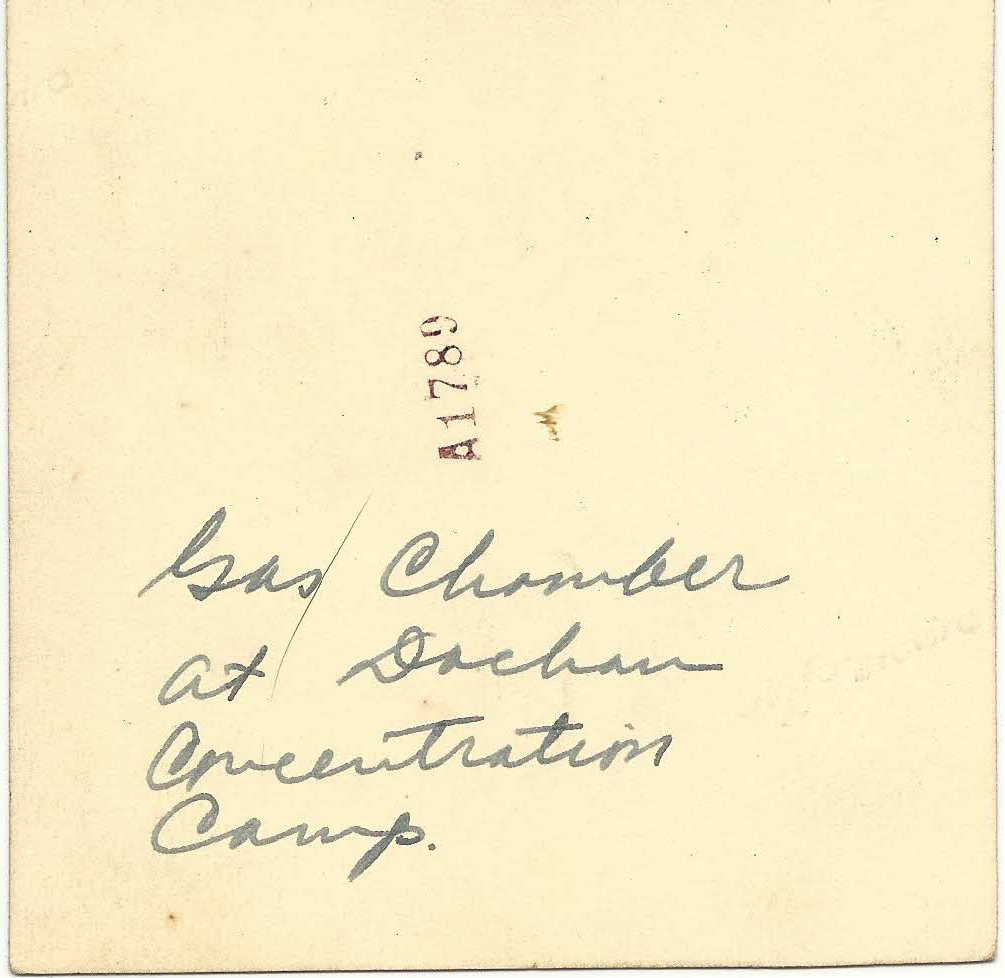 A1789
Gas Chamber
at Dachau
Concentration
Camp.